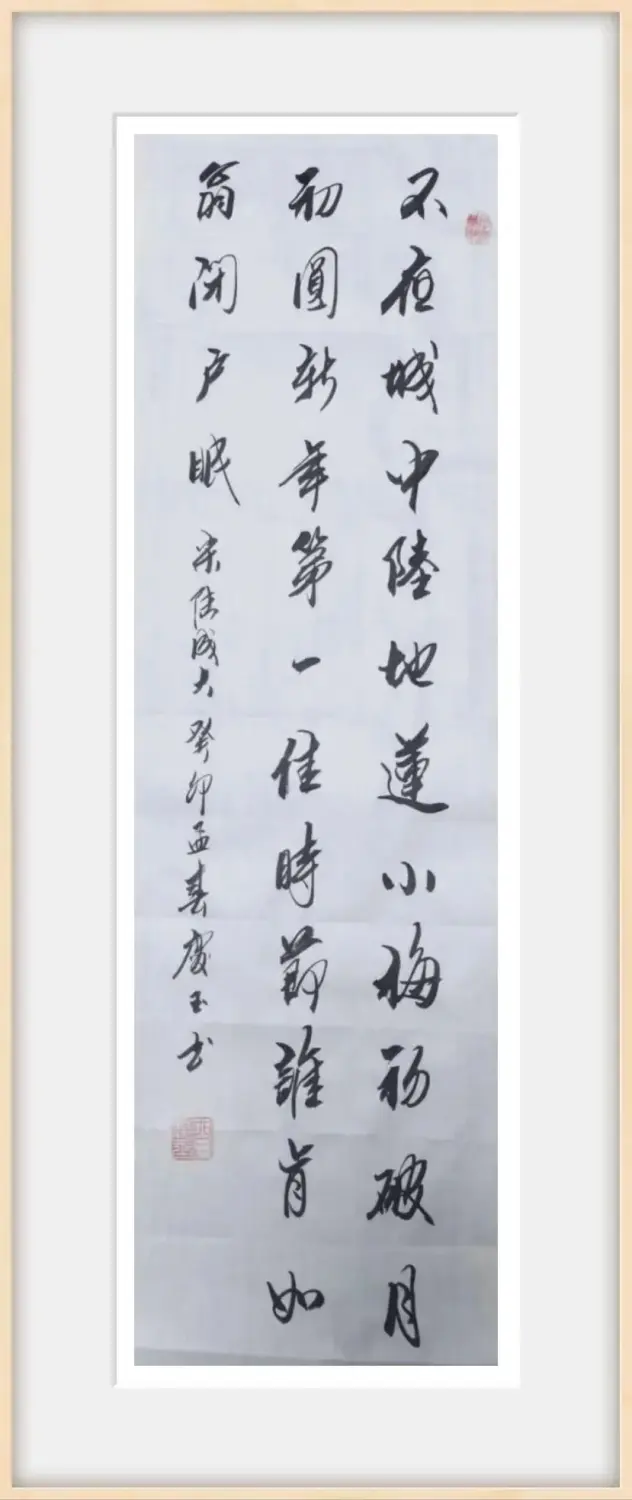 不夜城中陸地蓮小梅初破月
初圓新年第一佳時節誰肯如
翁閉户眠 宋成大 癸卯孟春慶玉书